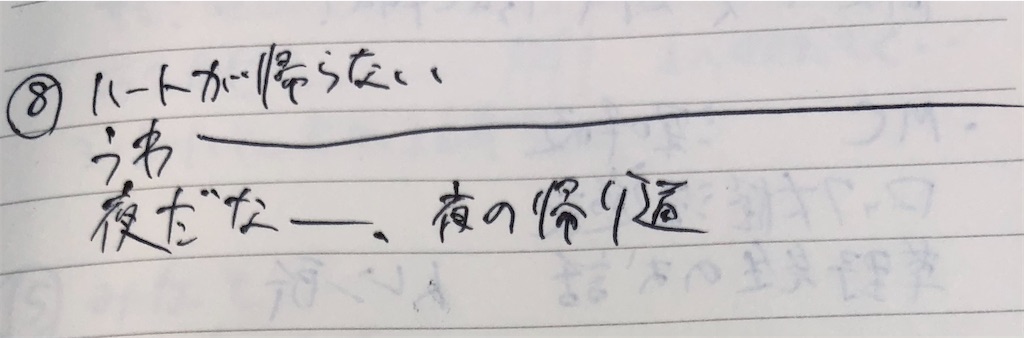 ⑧ ハートが帰らない
うわ――――――
夜だなー、夜の帰り道